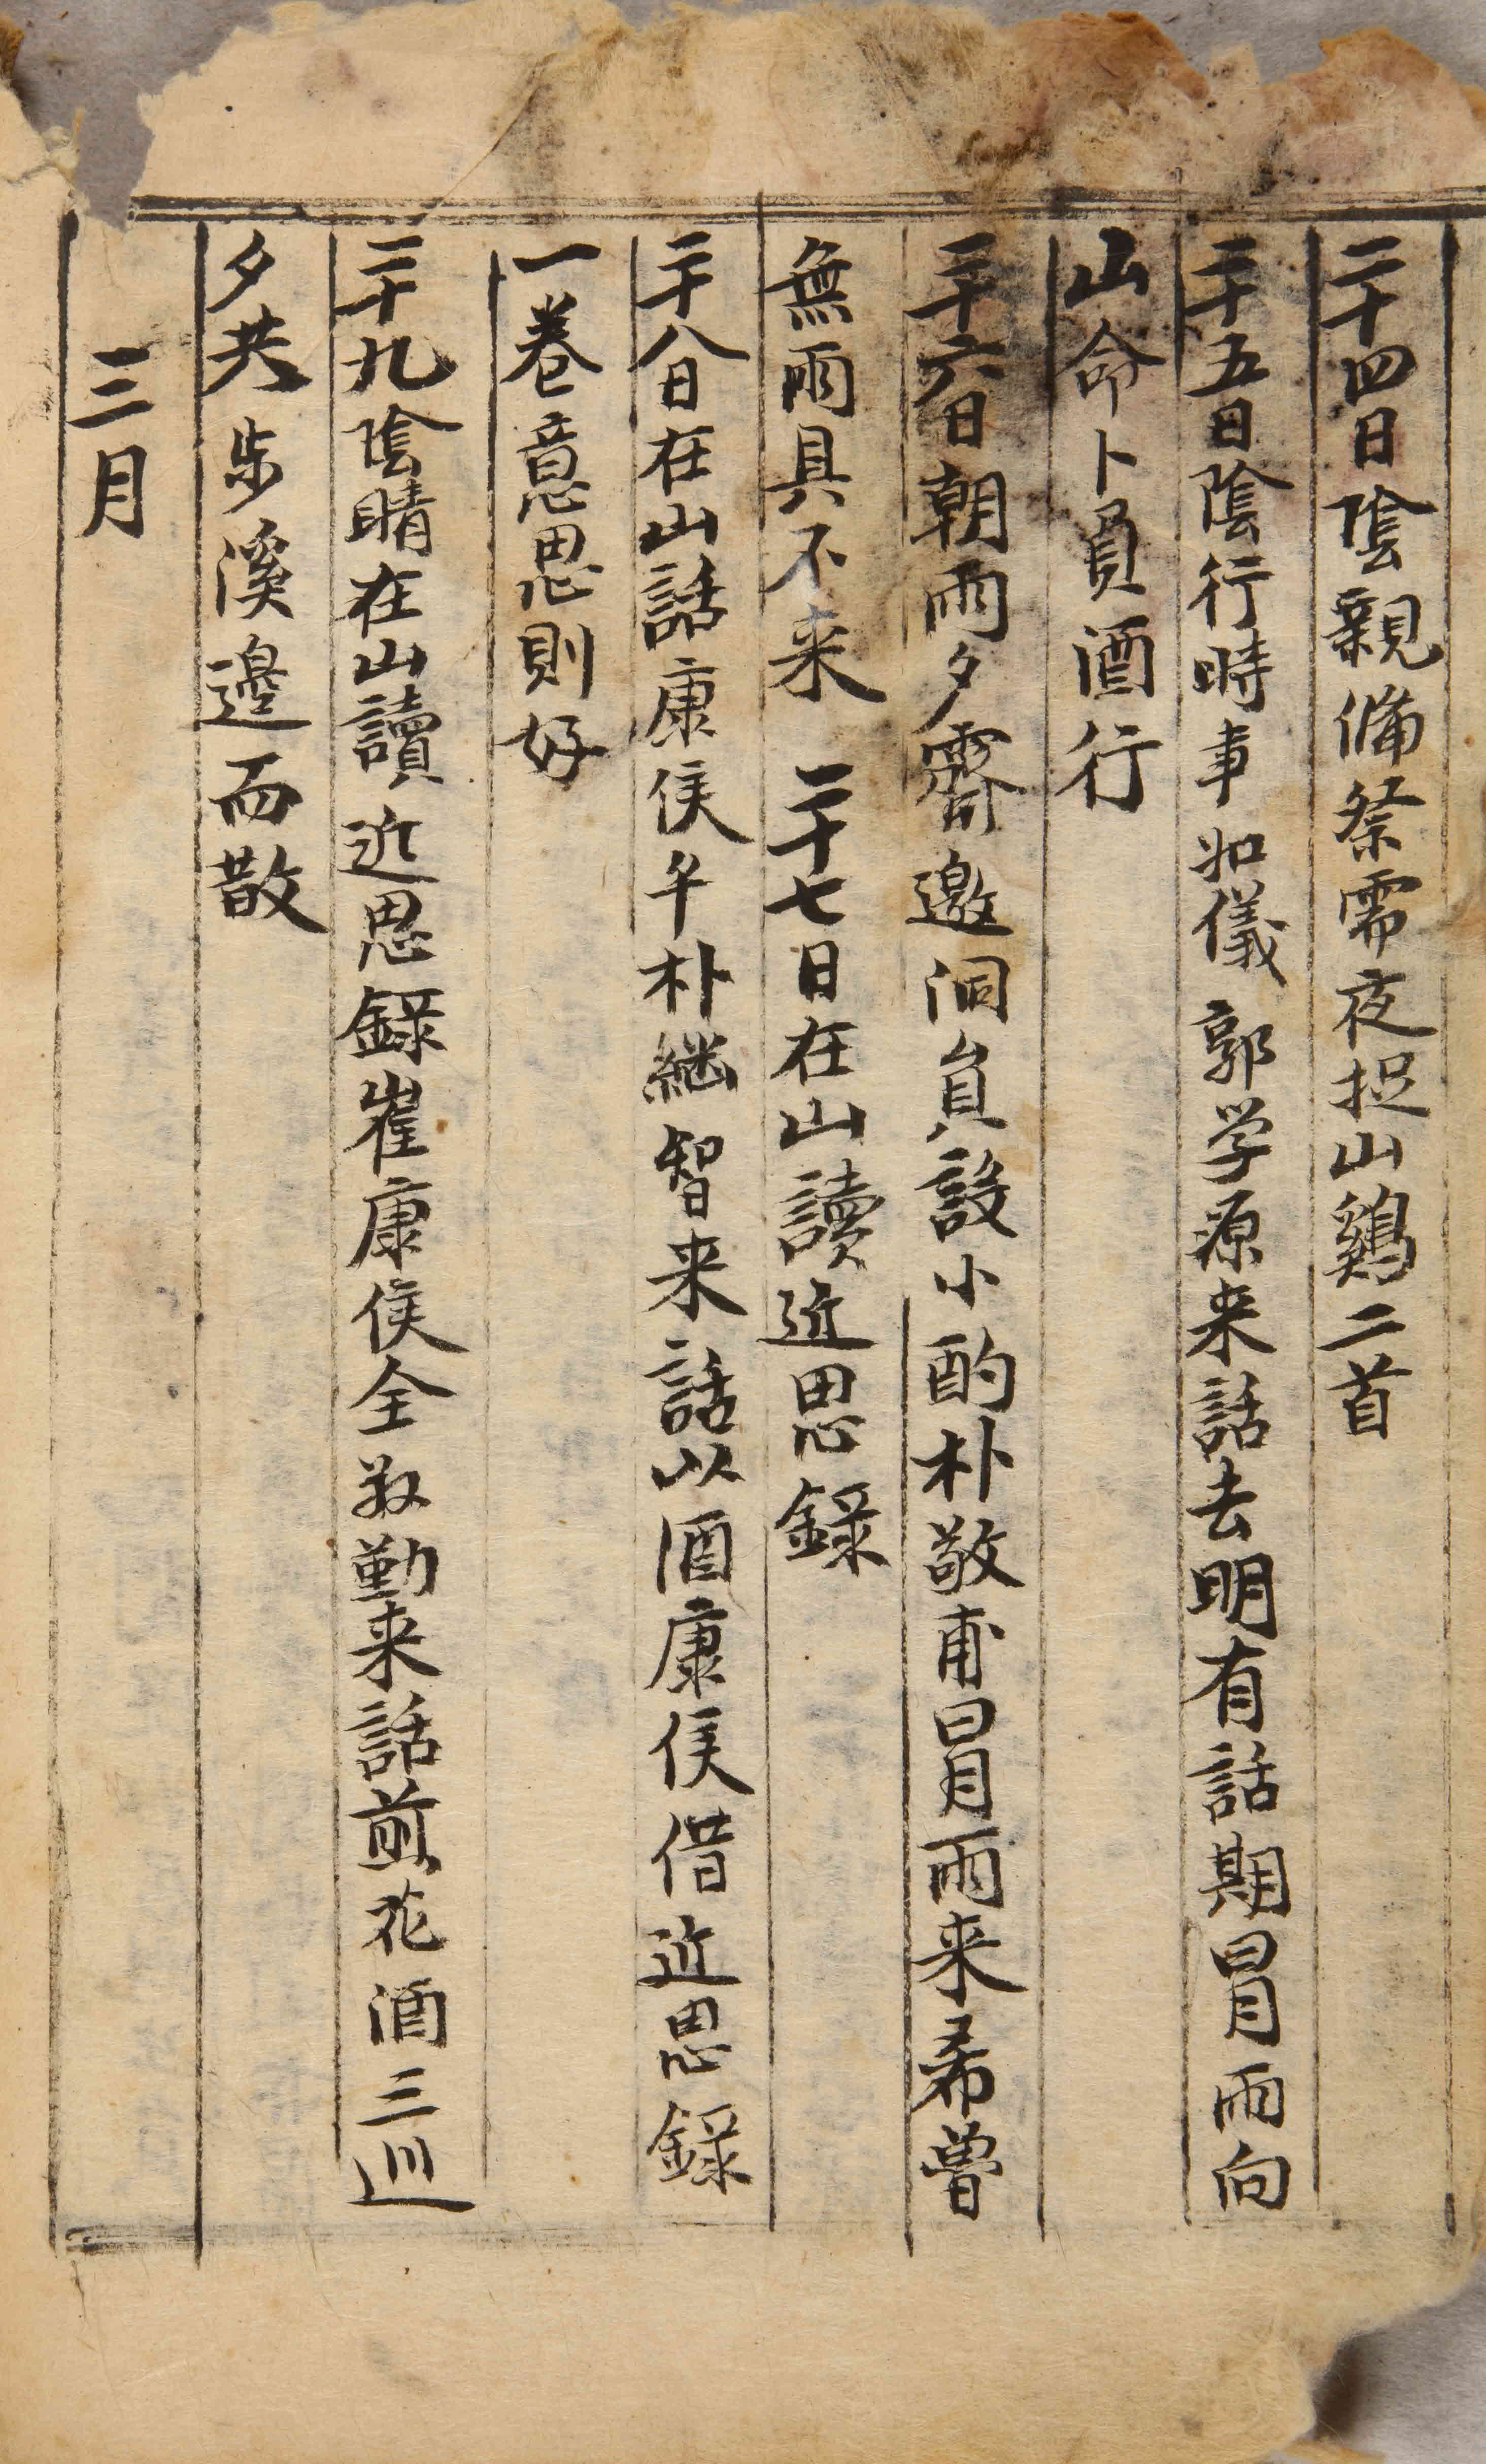 二十四日陰親備祭需夜捉山鷄二首
二十五日陰行時事如儀郭学源来話去明有話期冒雨向
山命卜員酒行
二十六日朝雨夕霽邀洞員設小酌朴敬甫冒雨来希曽
無雨具不来 二十七日在山讀近思錄
二十八日在山話康侯午朴継智来話以酒康侯借近思錄
一巻意思則好
二十九陰晴在山讀近思錄崔康侯全敬勤来話煎花酒三巡
夕共步溪邉而散
三月